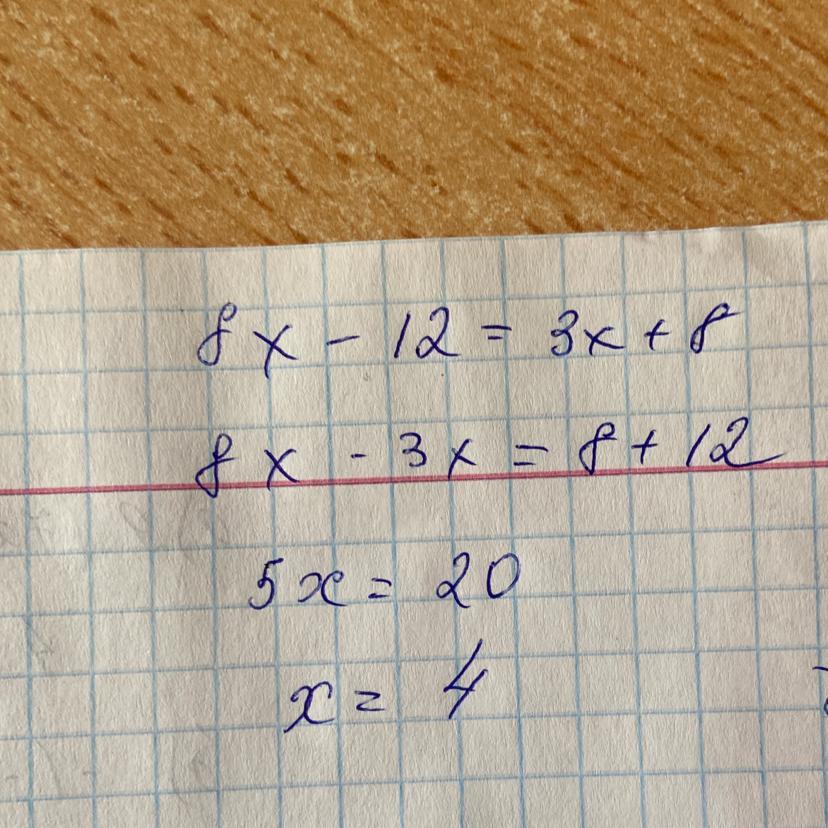 8x - 12 = 3x + 8
8x - 3x = 8 + 12
5x = 20
x = 4